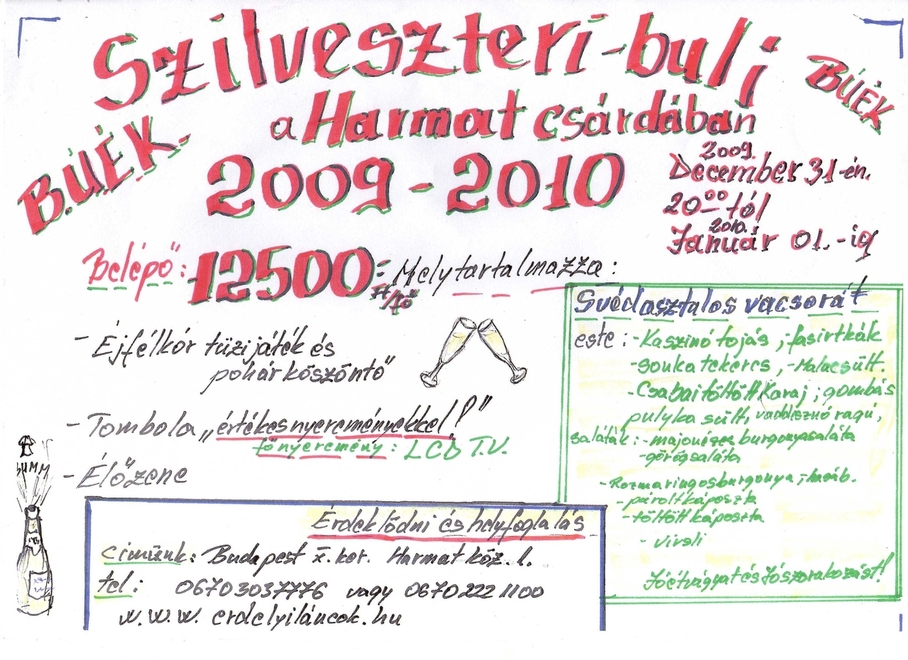 Szilveszteri-buli
BÚÉK
a Harmat csárdában
B.ÚÉK.
2009-2010
2009.
December 31-én.
20⁰⁰ tól
2010.
Január 01.-ig
Belépő: 12500= Ft/fő Melytartalmazza:
- Éjfélkor tűzijáték és
pohárköszöntő"
- Tombola „értékesnyereményekkel!"
főnyeremény: LCD T.V.
- Élőzene
BUMM
Svédasztalos vacsorát
este: - Kaszinótojás ; fasirtkák
- sonkatekercs , - Malacsült.
- Csabaitöltött Karaj ; gombás
pulyka sült, vaddisznó ragú,
saláták: - majonézes burgonyasaláta
- görögsaláta
- Rozmaringosburgonya ; hasáb.
- pároltkáposzta
- töltött káposzta
- virsli
Jóétvágyat és Jószorakozást!
Érdeklődni és helyfoglalás
Címünk: Budapest X. ker. Harmat köz. 1.
tel: 06703037776 vagy 0670 222 1100
w.w.w. erdelyiláncok.hu